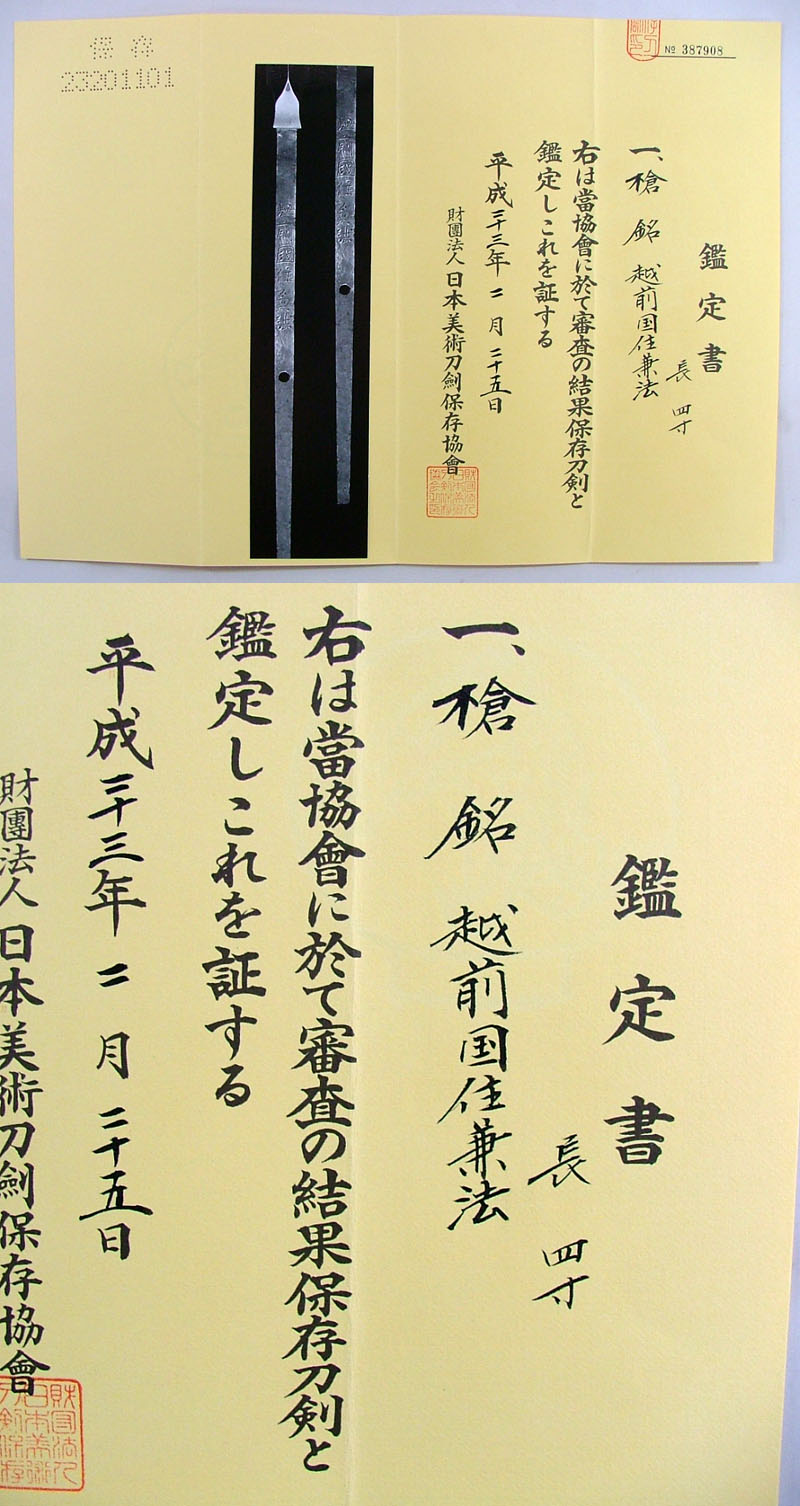 保存
23201101
№ 387908
鑑定書
一、槍 銘 越前国住兼法
長 四寸
右は當協會に於て審査の結果保存刀剣と
鑑定しこれを証する
平成二十三年 二月 二十五日
財團法人 日本美術刀劍保存協會
鑑定書
長 四寸
一、槍 銘 越前国住兼法
右は當協會に於て審査の結果保存刀剣と
鑑定しこれを証する
平成二十三年 二月 二十五日
財團法人 日本美術刀劍保存協會